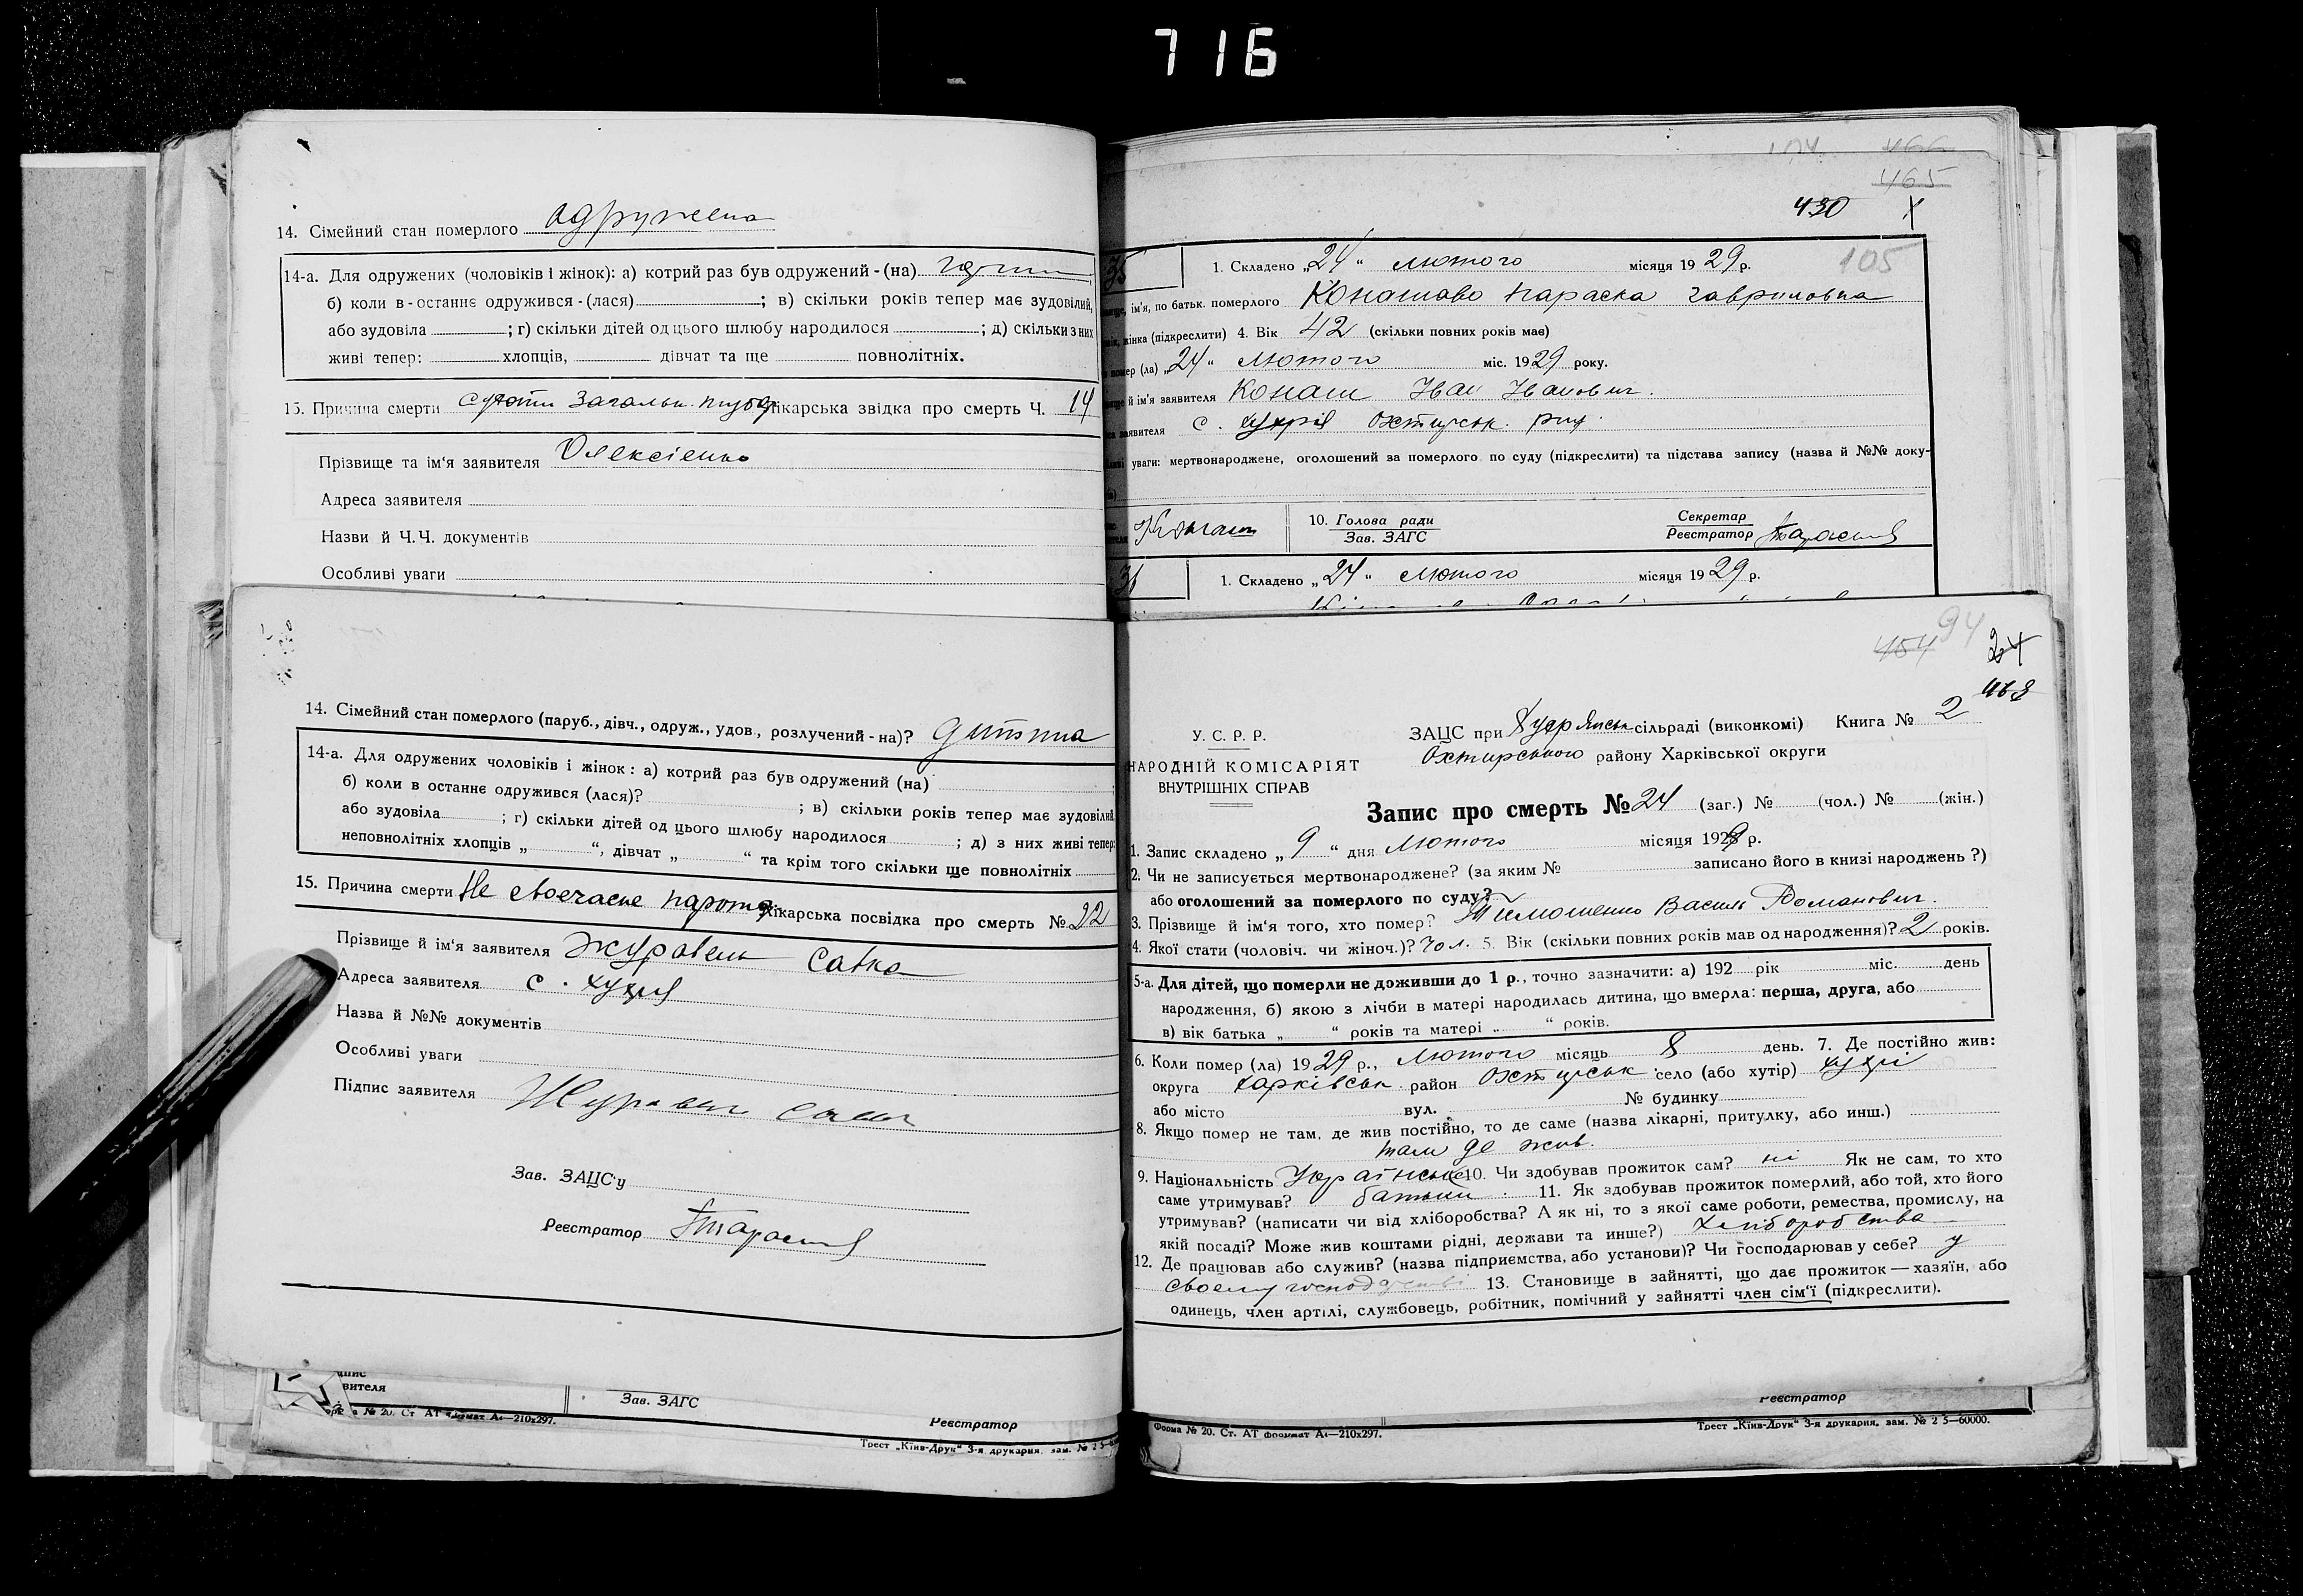 716
14. Сімейний стан померлого одружена
14-а. Для одружених (чоловіків і жінок): а) котрий раз був одружений - (на)
б) коли в - останнє одружився - (лася) ; в) скільки років тепер має зудовілий,
або зудовіла ; г) скільки дітей од цього шлюбу народилося ; д) скільки з них
живі тепер: хлопців, дівчат та ще повнолітніх.
15. Причина смерти лікарська звідка про смерть Ч. 14
Прізвище та ім'я заявителя Олексієнко
Адреса заявителя
Назви й Ч.Ч. документів
Особливі уваги
466
465
430 X
35 1. Складено „24“ лютого місяця 1929 р. 105
ім'я, по батьк. померлого Конашова Параска Гавриловна
жінка (підкреслити) 4. Вік 42 (скільки повних років має)
помер (ла) „24“ Лютого міс. 1929 року.
й ім'я заявителя Конаш Іван Іванович.
заявителя с. Хухрія Охтирськ. рну.
уваги: мертвонароджене, оголошений за померлого по суду (підкреслити) та підстава запису (назва й №№ доку-
Конаш 10. Голова ради Секретар
Зав. ЗАГС Реєстратор
36 1. Складено „24“ лютого місяця 1929 р.
14. Сімейний стан померлого (паруб., дівч., одруж., удов., розлучений - на)? дитина
14-а. Для одружених чоловіків і жінок: а) котрий раз був одружений (на)
б) коли в останнє одружився (лася)? ; в) скільки років тепер має зудовілий,
або зудовіла ; г) скільки дітей од цього шлюбу народилося ; д) з них живі тепер:
неповнолітніх хлопців „ “, дівчат „ “ та крім того скільки ще повнолітніх
15. Причина смерти Не своєчасне лікарська посвідка про смерть № 22
Прізвище й ім'я заявителя Журавель Савка
Адреса заявителя с. Хухрія
Назва й №№ документів
Особливі уваги
Підпис заявителя Журавель Савка
Зав. ЗАЦС'у
Реєстратор
454 94
24
468
У. С. Р. Р.
НАРОДНІЙ КОМІСАРІЯТ
ВНУТРІШНІХ СПРАВ
ЗАЦС при Хухрянськ сільраді (виконкомі) Книга № 2
Охтирського району Харківської округи
Запис про смерть № 24 (заг.) № (чол.) № (жін.)
1. Запис складено „9“ дня Лютого місяця 1929 р.
2. Чи не записується мертвонароджене? (за яким № записано його в книзі народжень?)
або оголошений за померлого по суду?
3. Прізвище й ім'я того, хто помер? Тимошенко Василь Романович.
4. Якої стати (чоловіч. чи жіноч.)? Чол. 5. Вік (скільки повних років мав од народження)? 2 років.
5-а. Для дітей, що померли не доживши до 1 р., точно зазначити: а) 192 рік міс. день
народження, б) якою з лічби в матері народилась дитина, що вмерла: перша, друга, або
в) вік батька „ “ років та матері „ “ років.
6. Коли помер (ла) 1929 р., Лютого місяць 8 день. 7. Де постійно жив:
округа Харківськ. район Охтирськ. село (або хутір) Хухрі
або місто вул. № будинку
8. Якщо помер не там, де жив постійно, то де саме (назва лікарні, притулку, або инш.)
там де жив.
9. Національність Українське 10. Чи здобував прожиток сам? ні Як не сам, то хто
саме утримував? батьки. 11. Як здобував прожиток померлий, або той, хто його
утримував? (написати чи від хліборобства? А як ні, то з якої саме роботи, ремества, промислу, на
якій посаді? Може жив коштами рідні, держави та инше?) Хліборобства
12. Де працював або служив? (назва підприємства, або установи)? Чи господарював у себе? у
своєму господарстві 13. Становище в зайнятті, що дає прожиток — хазяїн, або
одинець, член артілі, службовець, робітник, помічний у зайнятті член сім'ї (підкреслити).
вителя Зав. ЗАГС
Реєстратор
№ 20. Ст. АТ формат А4—210х297.
Трест „Київ-Друк“ 3-я друкарня, зам. № 2
Реєстратор
Форма № 20. Ст. АТ формат А4—210х297.
Трест „Київ-Друк“ 3-я друкарня, зам. № 2 5—60000.